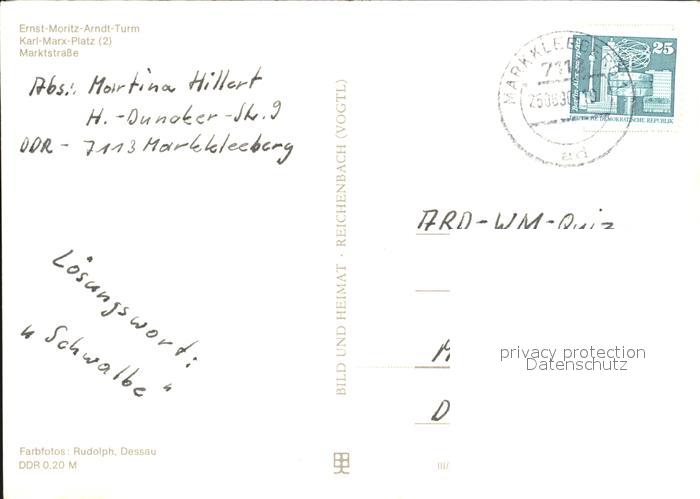 Ernst-Moritz-Arndt-Turm
Karl-Marx-Platz (2)
Marktstraße
Abs.: Martina Hillert
H.-Duncker-Str. 9
DDR - 7113 Markkleeberg
Lösungswort:
„Schwalbe"
Farbfotos: Rudolph, Dessau
DDR 0,20 M
BILD UND HEIMAT · REICHENBACH (VOGTL)
MARKKLEEBERG
7113
ad
25
DEUTSCHE DEMOKRATISCHE REPUBLIK
ARD-WM-Quiz
M
D
III/
privacy protection
Datenschutz